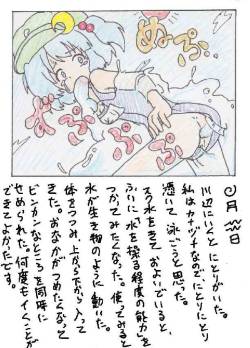 ぬぷ
ぬぷ
〇月〷日
川辺にいくとにとりがいた。
私はカナヅチなのでにとりにとり
憑いて泳ごうと思った。
スク水をきておよいでいると、
ふいに「水を操る程度の能力」を
つかってみたくなった。使ってみると
水が生き物のように動いた。
体をつつみ、上から下から入って
きた。おなかがつめたくなって
ビンカンなところを同時に
せめられた。何度もイくことが
できてよかったです。